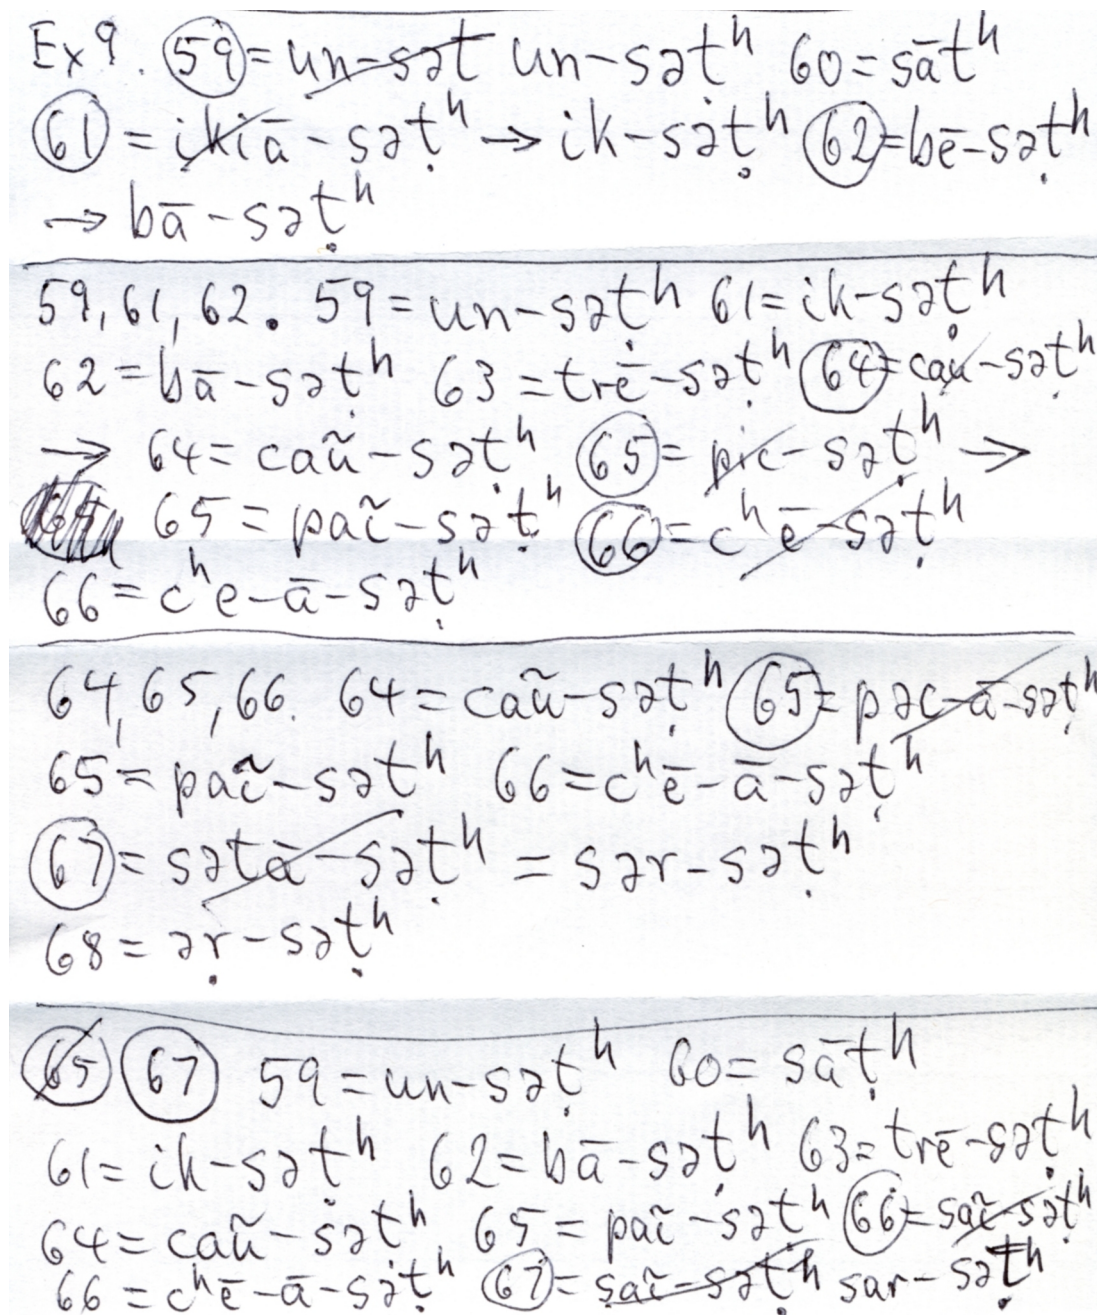 Ex 9. 59 = un-səṭ un-səṭʰ 60 = sāṭʰ
61 = ikiā-səṭʰ → ik-səṭʰ 62 = bē-səṭʰ
→ bā-səṭʰ
59, 61, 62. 59 = un-səṭʰ 61 = ik-səṭʰ
62 = bā-səṭʰ 63 = trē-səṭʰ 64 = cau-səṭʰ
→ 64 = caũ-səṭʰ 65 = pic-səṭʰ →
65 = paĩ-səṭʰ 66 = cʰē-səṭʰ
66 = cʰe-ā-səṭʰ
64, 65, 66. 64 = caũ-səṭʰ 65 = pəc-ā-səṭʰ
65 = paĩ-səṭʰ 66 = cʰē-ā-səṭʰ
67 = sətā-səṭʰ = sər-səṭʰ
68 = əṛ-səṭʰ
65 67 59 = un-səṭʰ 60 = sāṭʰ
61 = ik-səṭʰ 62 = bā-səṭʰ 63 = trē-səṭʰ
64 = caũ-səṭʰ 65 = paĩ-səṭʰ 66 = saĩ-səṭʰ
66 = cʰē-ā-səṭʰ 67 = saĩ-səṭʰ sar-səṭʰ